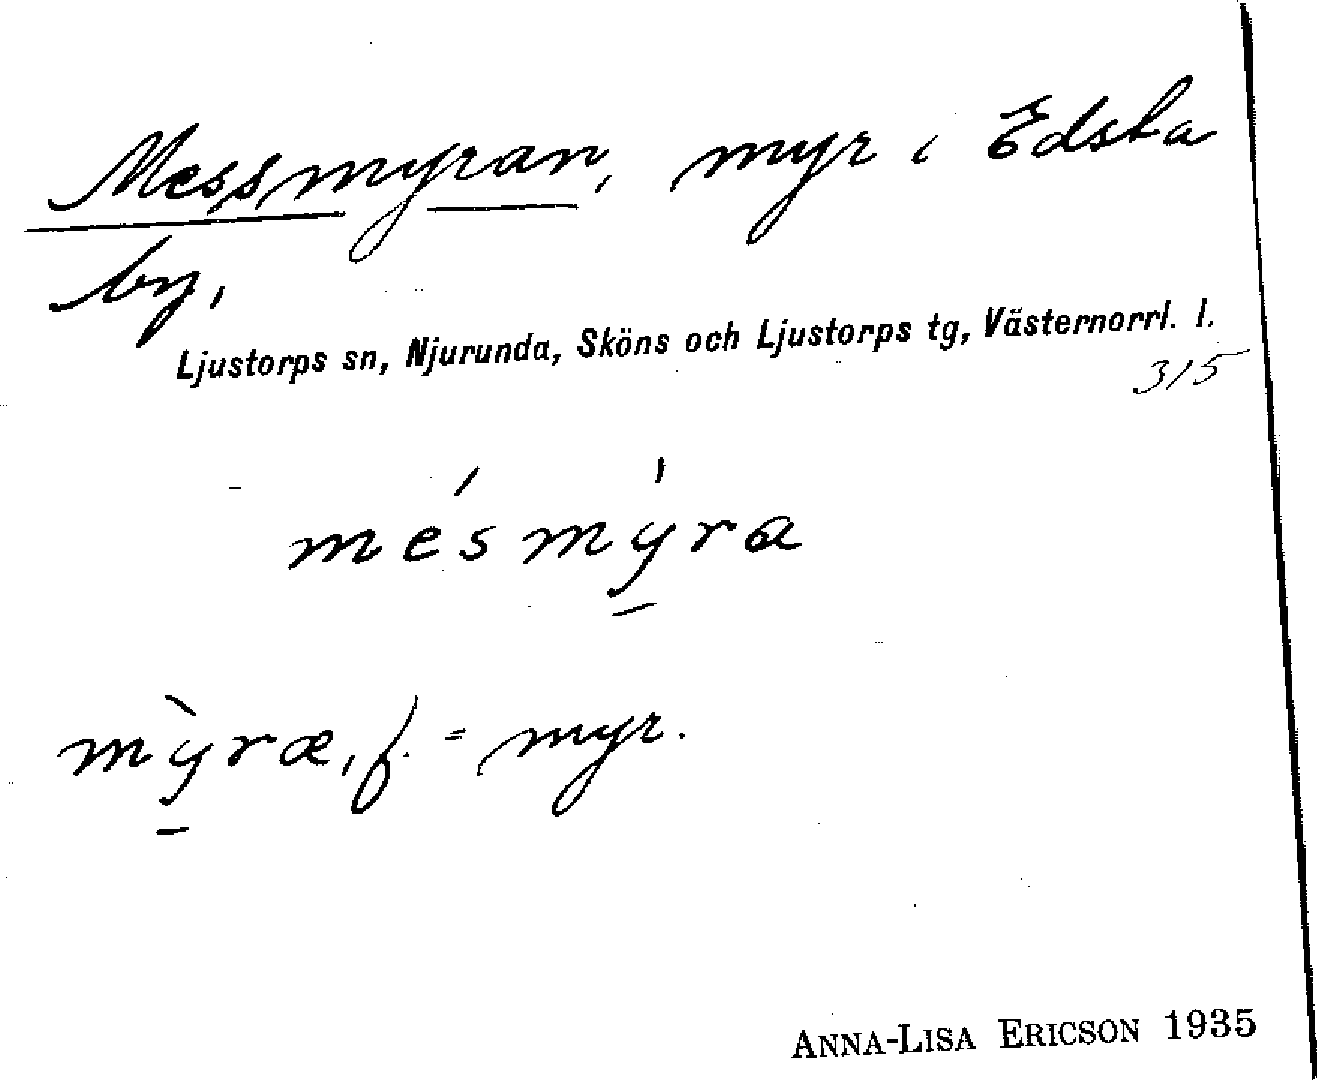 Messmyran, myr i Edsta
by,
Ljustorps sn, Njurunda, Sköns och Ljustorps tg, Västernorrl. l.
315
mésmýra
mỳræ, f. = myr.
ANNA-LISA ERICSON 1935